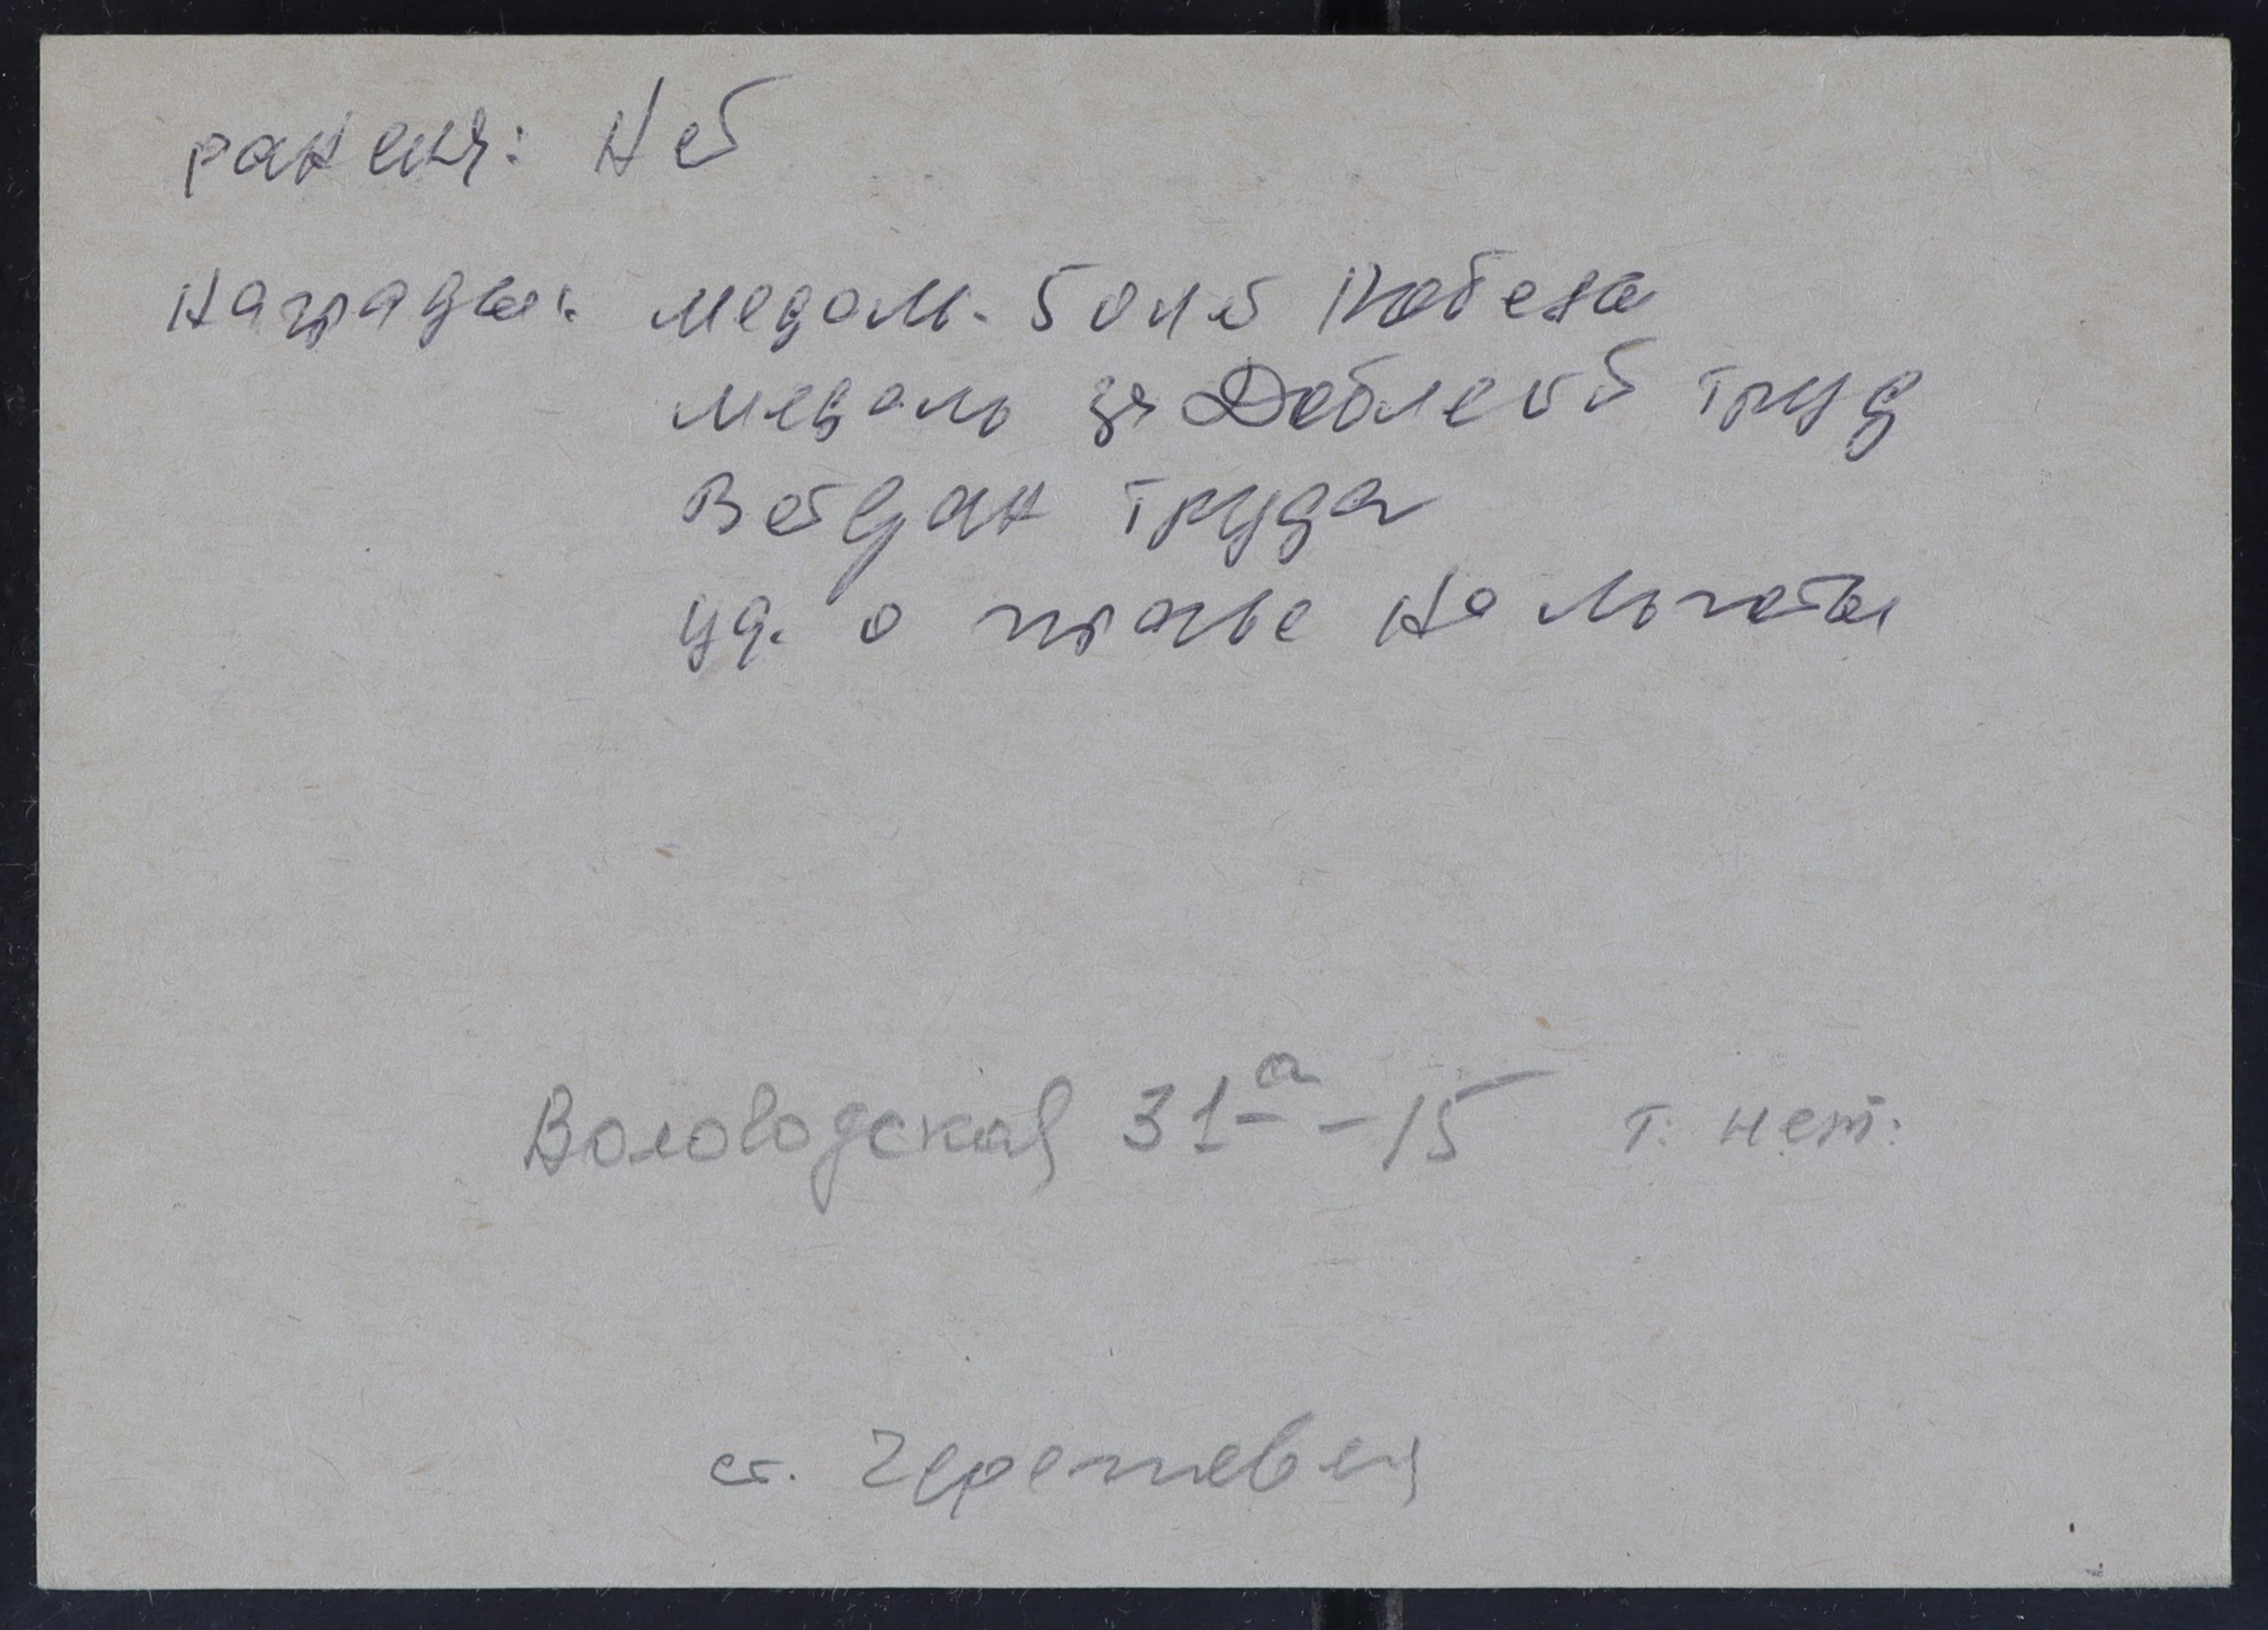 ранения: Нет
награды: медаль 50 лет Победы
медаль за Доблест труд
Ветеран труда
уд. о праве на льготы
Вологодская 31а - 15 т. нет.
ст. Череповец